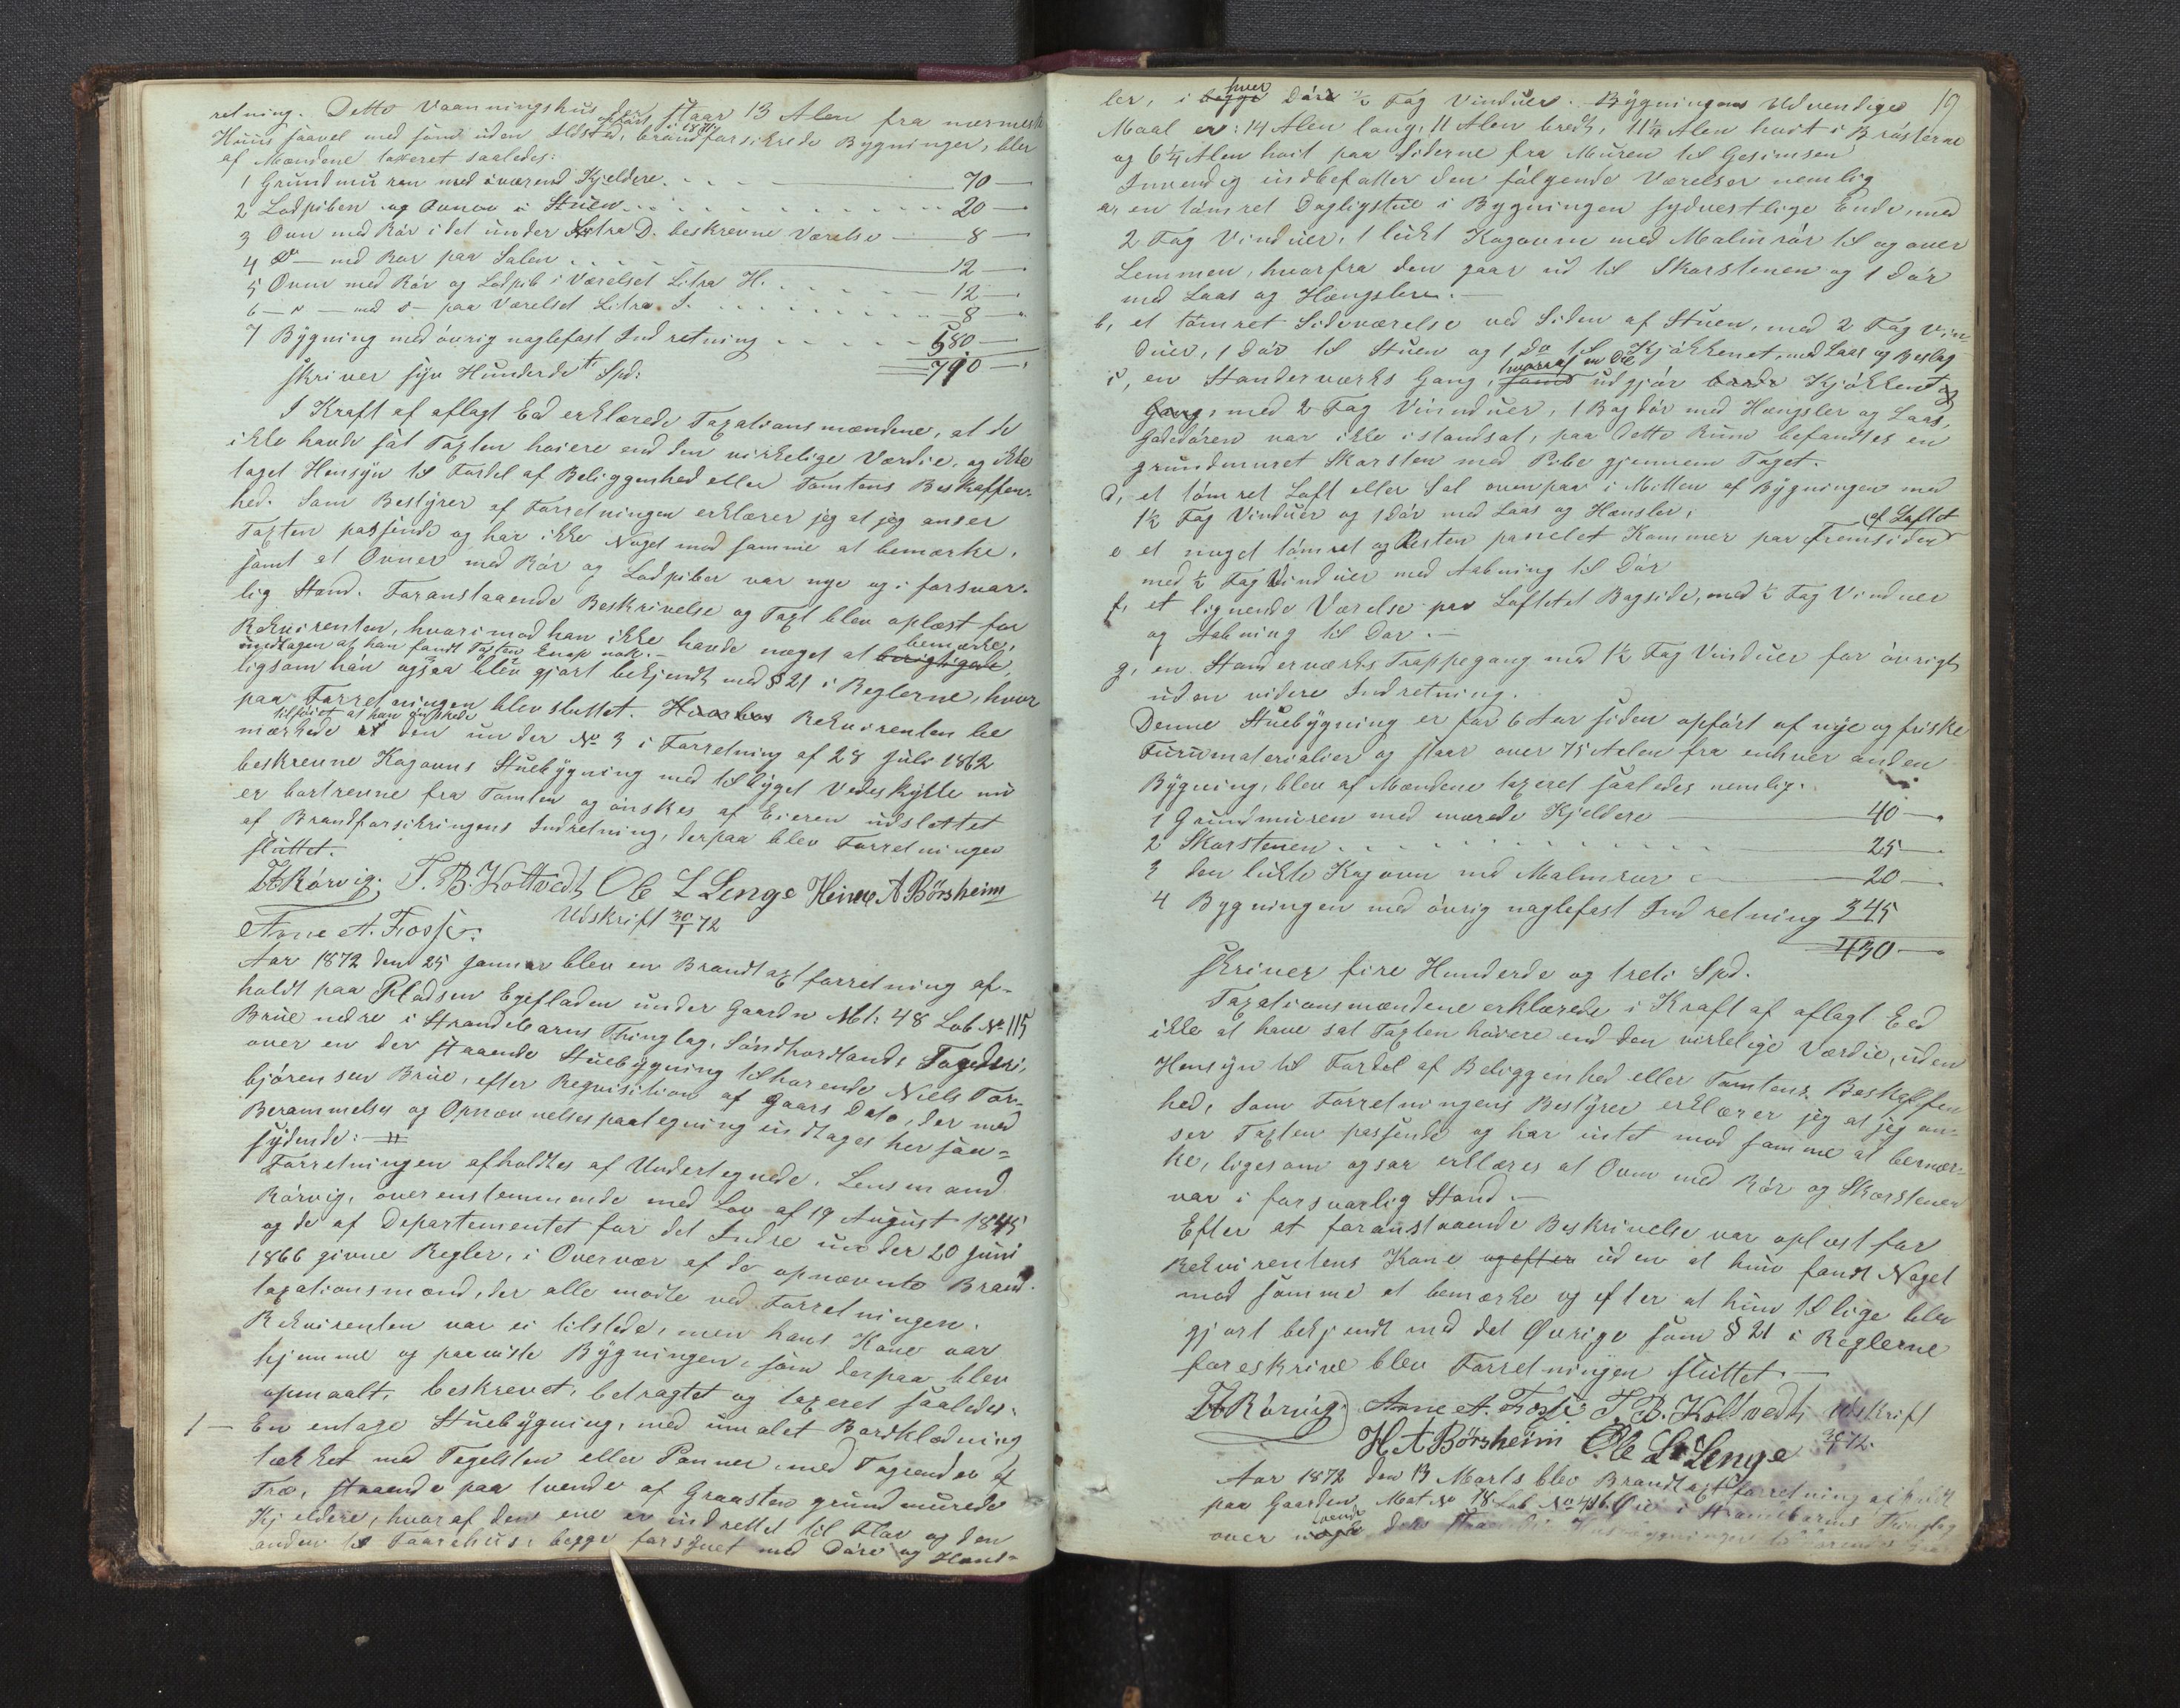 retning. Dette Vaanningshus der staar 13 Alen fra nærmeste
opført i 1871
Huus saavel med som uden Ildsted, brandforsikrede Bygninger, blev
af Mændene taxeret saaledes:
1 Grundmuren med værende Kjeldere 70
2 Lodpiben og Ovnen i Stuen 20
3 Ovn med Rør i det under Litra D. beskrevne Værelse 8
4 Do med Rør paa Salen 12
5 Ovn med Rør og Lodpib i Værelset Litra H. 12
6 — " — med do paa Værelset Litra I. 8
7 Bygning med øvrig naglefast Indretning 580
710
skriver syv Hunderde ti Spd:
I Kraft af aflagt Eed erklærede Taxationsmændene, at de
ikke havde sat Taxten høiere end den virkelige Værdie, og ikke
taget Hensyn til Fordel af Beliggenhed eller Tomtens Beskaffen-
hed. Som Bestyrer af Forretningen erklærer jeg at jeg anser
Taxten passende og har ikke Noget mod samme at bemærke,
samt at Ovner med Rør og Lodpiber var nye og i forsvar-
lig Stand. Foranstaaende Beskrivelse og Taxt blev oplæst for
Rekvirenten, hvorimod han ikke havde noget at berigtigede,
bemærke,
undtagen at han fandt Taxten knap nok.
ligsom han ogsaa blev gjort bekjendt med § 21 i Reglerne, hvor
paa Forretningen blev sluttet. Rekvirenten be
tilføiet at han ønskede
mærkede at den under No 3 i Forretning af 28 Juli 1862
beskrevne Kogovns Stuebygning med tilbygget Vedeskykke nu
er bortrevne fra Tomten og ønskes af Eieren udslettet
af Brandforsikringens Indretning, derpaa blev Forretningen
sluttet.
Rørvig. T. B. Koltvedt Ole L Lenge Heine A Børsheim
Arne A. Fosse. Udskrift 30/1 72
Aar 1872 den 25 Januar blev en Brandtaxtforretning af-
holdt paa Pladsen Egefladen under Gaarden Mt: 48 Løb No 115
Brue nedre i Strandebarms Thinglag, Søndhordlands Fogderi,
over en der staaende Stuebygning tilhørende Niels Tor-
bjørensen Brue, efter Reqvisition af Gaars Dato, der med
Berammelses og Opnævnelsespaategning indtages her saa-
lydende: — " —
Forretningen afholdtes af Undertegnede, Lensmand
Rørvig, overenstemmende med Lov af 19 August 1845
og de af Departementet for det Indre under 20 Juni
1866 givne Regler, i Overvær af de opnævnte Brand-
taxationsmænd, der alle mødte ved Forretningen.
Rekvirenten var ei tilstede, men hans Kone var
hjemme og paaviste Bygningen, som derpaa blev
opmaalt, beskrevet, betragtet og taxeret saaledes:
1 — En entage Stuebygning, med umalet Bordklædning
tækket med Tegelsten eller Panner, med Tagrender af
Træ, staaende paa tvende af Graasten grundmurede
Kjeldere, hvoraf den ene er indrettet til Flor og den
anden til Faarehuus, begge forsynet med Døre og Hæng-
19
ler, i begge Døre ½ Fag Vinduer. Bygningens Udvendige
hver
Maal er: 14 Alen lang, 11 Alen bredt, 11¼ Alen høit i Brøsterne
og 6¼ Alen høit paa Siderne fra Muren til Gesimsen
Invendig indbefatter den følgende Værelser nemlig
a, en tømret Dagligstue i Bygningen sydvestlige Ende, med
2 Fag Vinduer, 1 lukt Kogovn med Malmrør til og over
Lemmen, hvorfra den gaar ud til Skorstenen og 1 Dør
med Laas og Hængsler. —
b, et tømret Sideværelse ved Siden af Stuen, med 2 Fag Vin-
duer, 1 Dør til Stuen og 1 Do til Kjøkkenet, med Laas og Beslag
hvoraf en Del
c, en Standerværks Gang, som udgjør baade Kjøkken og
Gang, med 2 Fag Vinduer, 1 Bagdør med Hængsler og Laas,
Gadedøren var ikke istandsat, paa dette Rum befandtes en
grundmuret Skorsten med Pibe gjennem Taget.
d, et tømret Loft eller Sal ovenpaa i Mitten af Bygningen med
1½ Fag Vinduer og 1 Dør med Laas og Hænsler,
af Loftet
e et noget tømret og Resten panelet Kammer paa Fremsiden
med ½ Fag Vinduer med Aabning til Dør
f, et lignende Værelse paa Loftetet Bagside, med ½ Fag Vinduer
og Aabning til Dør. —
g, en Standerværks Trappegang med 1½ Fag Vinduer for øvrigt
uden videre Indretning.
Denne Stuebygning er for 6 Aar siden opført af nye og friske
Furumaterialier og staar over 75 Alen fra enhver anden
Bygning, blev af Mændene taxeret saaledes nemlig.
1 Grundmuren med værende Kjeldere 40
2 Skorstenen 25
3 den lukte Kogovn med Malmrør 20
4 Bygningen med øvrig naglefast Indretning 345
430
skriver fire Hunderde og treti Spd.
Taxationsmændene erklærede i Kraft af aflagt Eed
ikke at have sat Taxten høiere end den virkelige Værdie, uden
Hensyn til Fordel af Beliggenhed eller Tomtens Beskaffen
hed, Som Forretningens Bestyrer erklærer jeg at jeg an-
ser Taxten passende og har intet mod samme at bemær-
ke, ligesom ogsaa erklæres at Ovn med Rør og Skorstenen
var i forsvarlig Stand. —
Efter at foranstaaende Beskrivelse var oplæst for
Rekvirentens Kone og efter uden at hun fandt Noget
mod samme at bemærke og efter at hun tillige blev
gjort bekjendt med det Øvrige som § 21 i Reglerne
foreskrive blev Forretningen sluttet. —
Rørvig Arne A. Fosse T. B. Koltvedt Udskrift
H A Børsheim Ole L Lenge 30/1 72.
Aar 1872 den 13 Marts blev Brandtaxtforretning afholdt
paa Gaarden Mat No 18 Løb No i Strandebarms Thinglag
tvende
over nogle der staaende